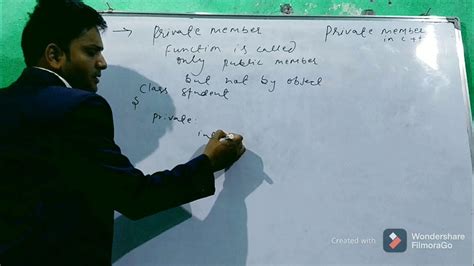 → private member
function is called
only public member
but not by object
class student
$
private:
in
private member
in c++
Created with
Wondershare
FilmoraGo